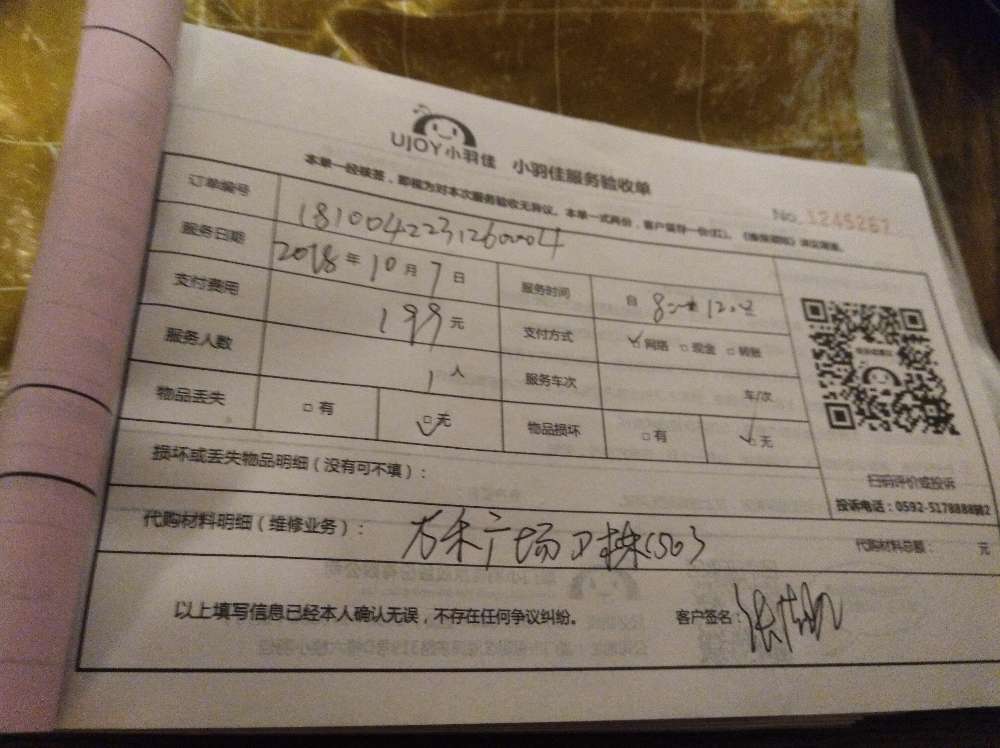 UJOY小羽佳 小羽佳服务验收单
本单一经核签，即视为对本次服务验收无异议。本单一式两份，客户留存一份(红)。
NO 1245267
订单编号 1810042231260004
服务日期 2018年10月7日 服务时间 自
支付费用 199元 支付方式 ☑网络 □现金 □转账
服务人数 1人 服务车次 车/次
物品丢失 □有 ☑无 物品损坏 □有 ☑无
扫码评价或投诉
损坏或丢失物品明细（没有可不填）：
投诉电话：0592-5178888
代购材料明细（维修业务）： 广场 代购材料总额： 元
以上填写信息已经本人确认无误，不存在任何争议纠纷。 客户签名：